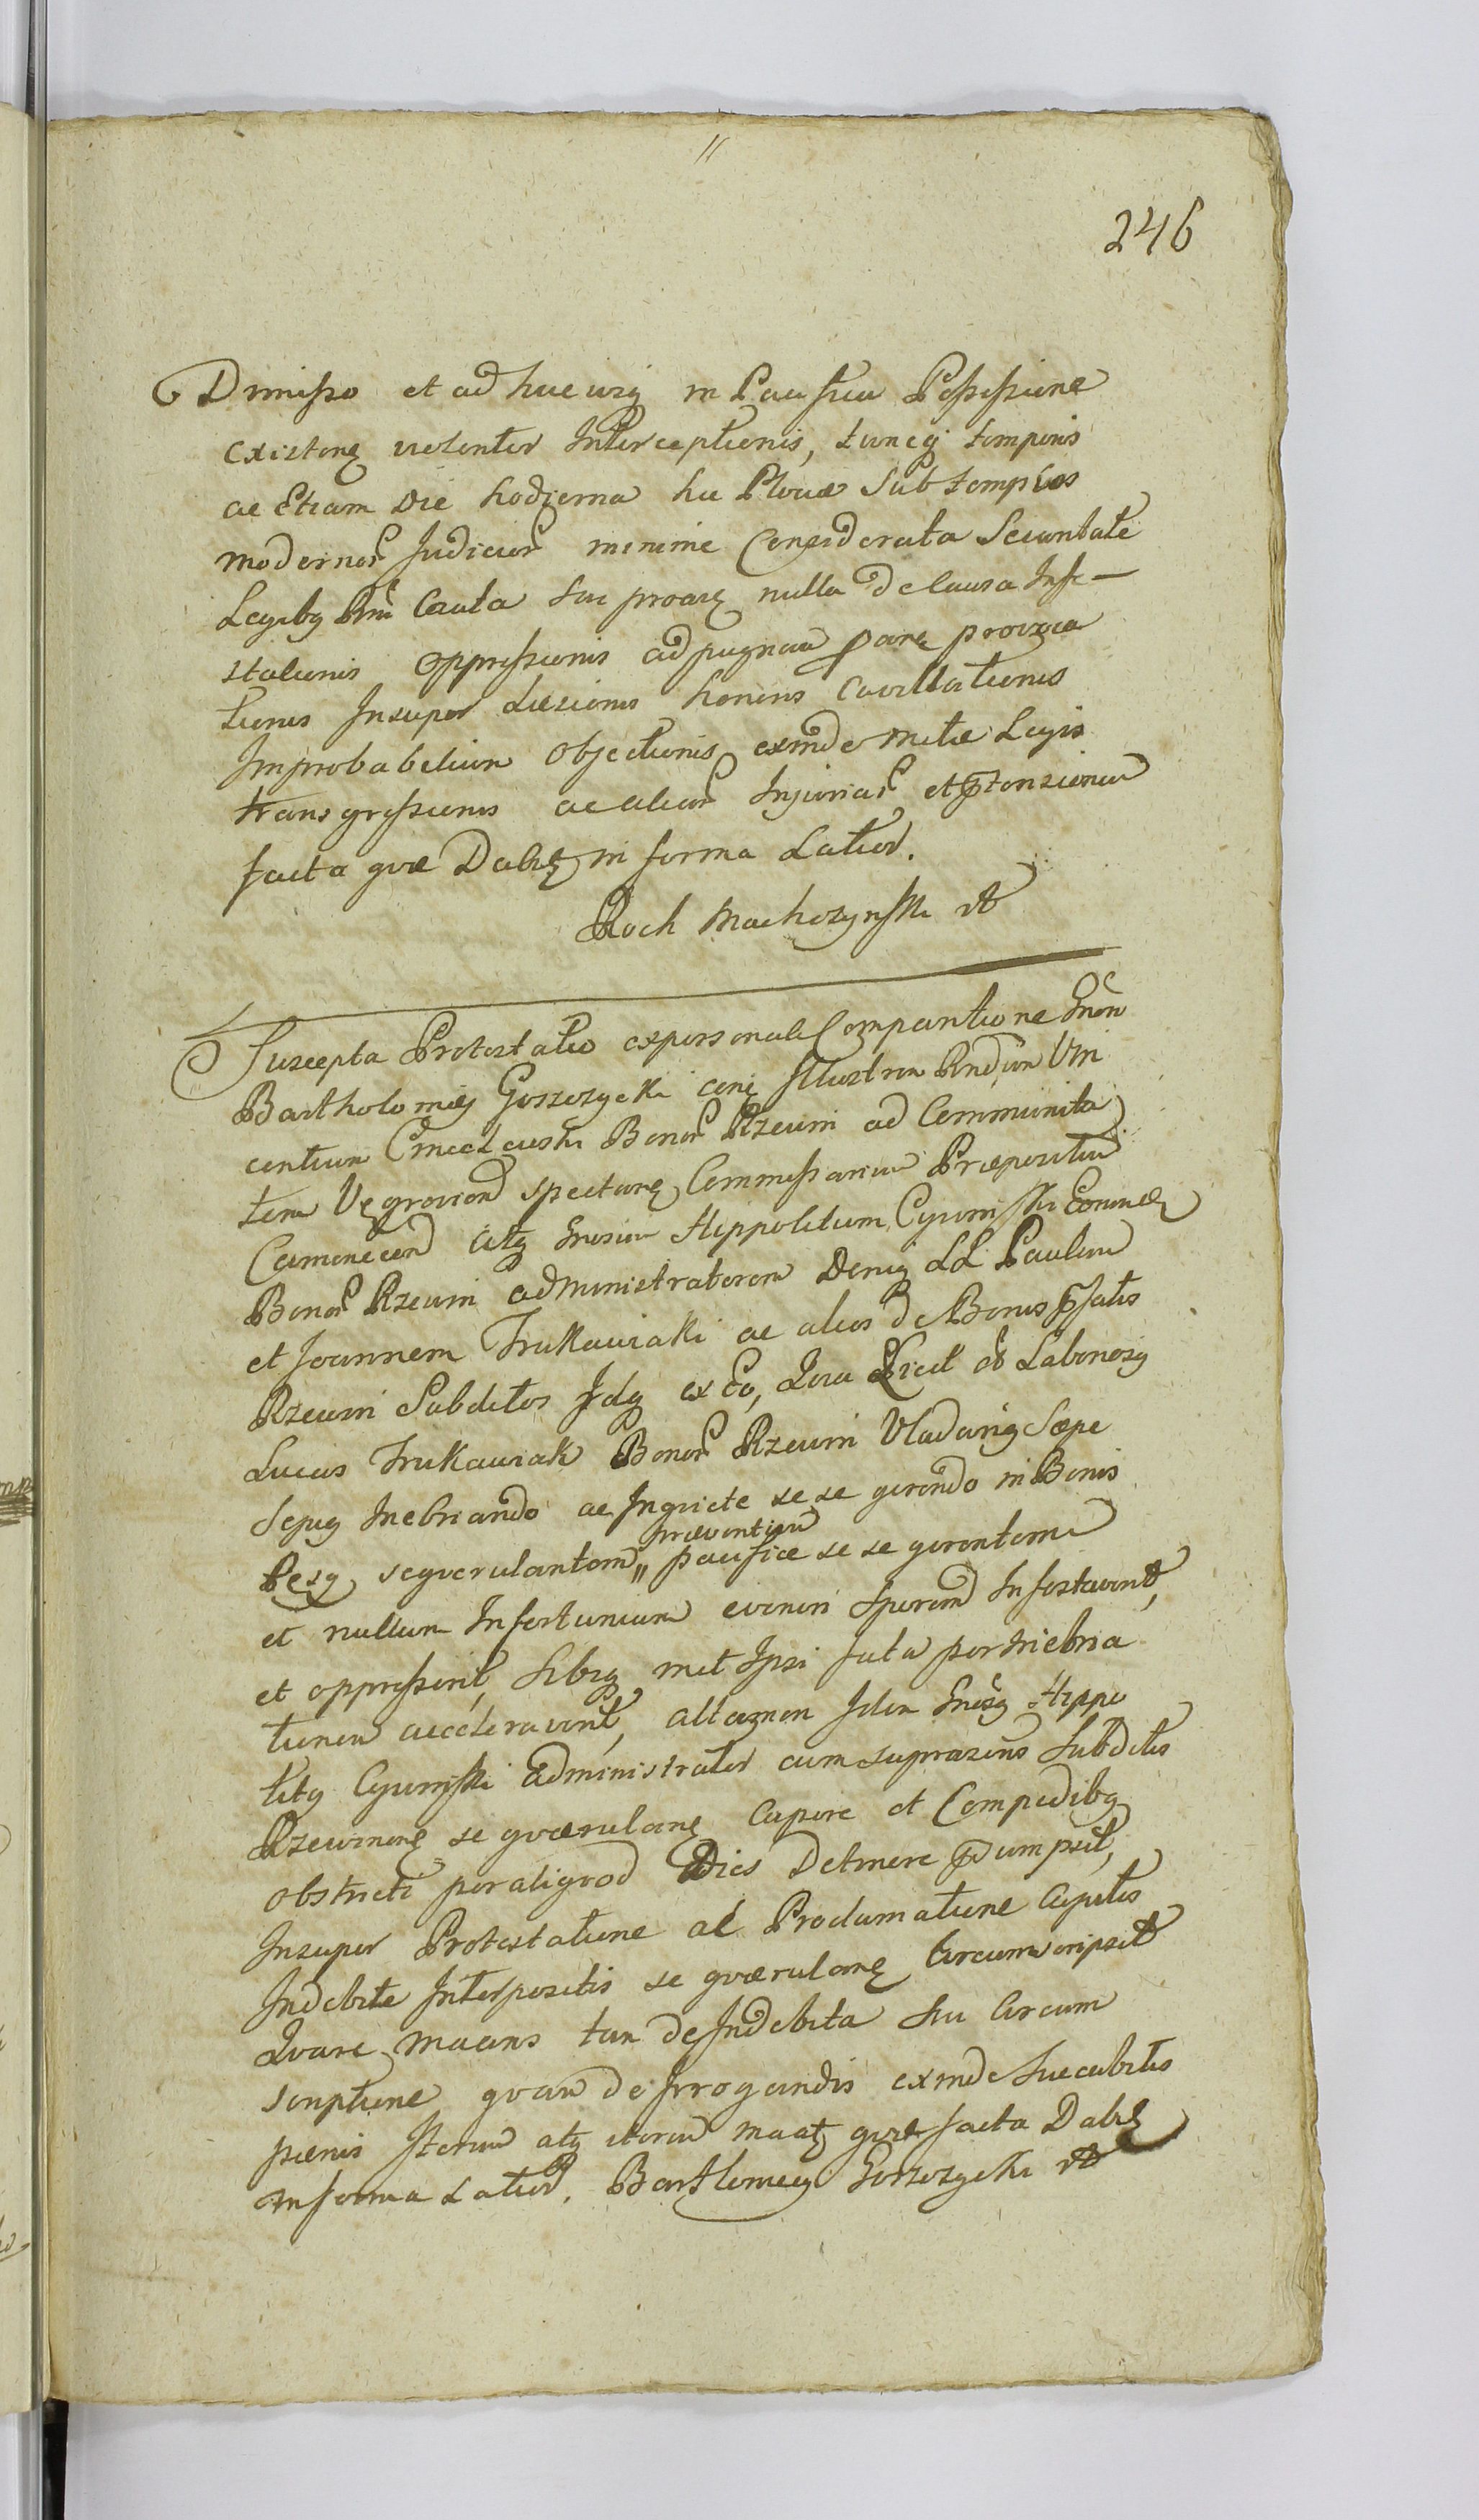 "
246
Dimisso et ad huc usq in Pacifica Possessione
existenq violenter Interceptionis, tuncq temporis
ac Etiam Die hodierna hic Plovæ Sub tempus
modernor Judicior minime Considerata Securitate
Legibq Rni Cauta Sui proarq nulla de Causa Infe-
stationis oppressionis ad pugnam parq provoca
tionis Insuper Læsionis honoris Cavillationis
Improbabilium Objectionis exinde metæ Legis
transgressionis ac aliar Injuriar et prtensionum
facta qvæ Dabit in forma Latior.
Roch Machczynski
Suscepta Protestatio ex personali Comparitione Gnosi
Bartholomæi Goszczycki conq Illustrem Rndum Vin
centium Cmielewski Bonor Rzewin ad Communita
tem Vęgrovien spectanq Commissarium Præpositum
Camenecen atq Gnosum Hippolitum Cywinski eorundem
Bonor Rzewin administratorem Deniq LL Paulum
et Joannem Trukawiaki ac alios de Bonis præfatis
Rzewin Subditos Idq ex Eo, Qvia Licet olim Laboriosq
Lucas Trukawiak Bonor Rzewin Vladariq Sæpe
Sepiq Inebriando ac Inqviete se se gerendo in Bonis
seqverulantem " præventium pacifice se se gerentem
et nullum Infortunium eveniri Sperand Infestaverit,
et oppresserit, Sibiq met Ipsi fata per Inebria
tionem acceleraverit, attamen Idem Gnosq Hippo
litq Cywinski Administrator cum suprascriptis Subditis
Rzewinenq se qværulanq Capere et Compedibq
obstricti per aliqvod Dies Detinere præsumpsit,
Insuper Protestatione ac Proclamatione Capitis
Indebite Interpositis se qværulanq Circumscripsit
Qvare Maans tam de Indebita Sui Circum
scriptione qvam de Irrogandis exinde Succubitis
pænis Iterum atq iterum maatq qvæ facta Dabit
in forma Latior. Bartlomiey Goszczycki